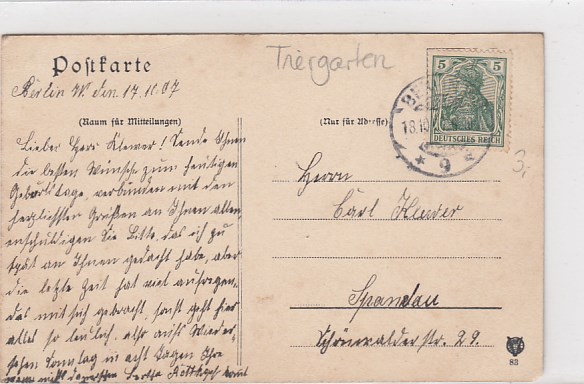 Tiergarten
Postkarte
Berlin W. den 17.10.07
(Raum für Mitteilungen)
(Nur für Adresse)
Lieber Herr Klawer! Sende Ihnen
die besten Wünsche zum heutigen
Geburtstage, verbunden mit den
herzlichsten Grüßen an Ihnen allen,
entschuldigen Sie bitte, das ich zu
spät an Ihnen gedacht habe, aber
die letzte Zeit hat viel aufregen-
des mit sich gebracht, sonst geht hier
alles so leidlich, also aufs Wieder-
sehen Sonntag in acht Tagen Ihre
Bertha
5
DEUTSCHES REICH
18.10
* 9
3,-
Herrn
Carl Klawer
Spandau
Schönwalder str. 29.
83